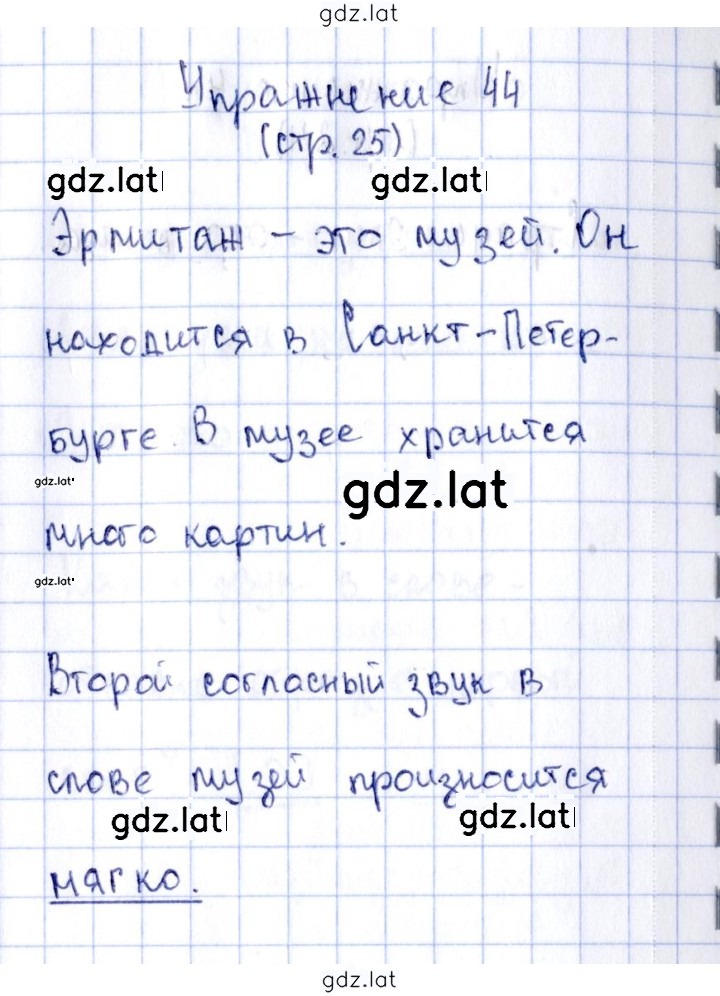 gdz.lat
Упражнение 44
(стр. 25)
gdz.lat gdz.lat
Эрмитаж – это музей. Он
находится в Санкт-Петер-
бурге. В музее хранится
gdz.lat gdz.lat
много картин.
gdz.lat
Второй согласный звук в
слове музей произносится
gdz.lat gdz.lat
мягко.
gdz.lat